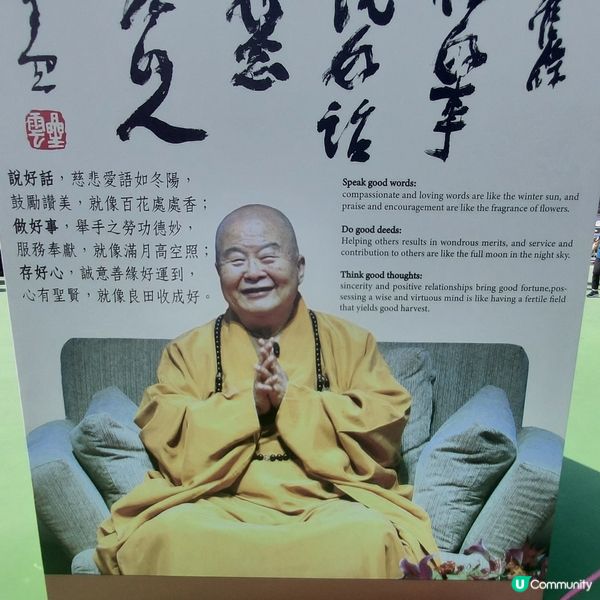 好事
好話
星雲
說好話，慈悲愛語如冬陽，
鼓勵讚美，就像百花處處香；
做好事，舉手之勞功德妙，
服務奉獻，就像滿月高空照；
存好心，誠意善緣好運到，
心有聖賢，就像良田收成好。
Speak good words:
compassionate and loving words are like the winter sun, and
praise and encouragement are like the fragrance of flowers.
Do good deeds:
Helping others results in wondrous merits, and service and
contribution to others are like the full moon in the night sky.
Think good thoughts:
sincerity and positive relationships bring good fortune,pos-
sessing a wise and virtuous mind is like having a fertile field
that yields good harvest.
U Community